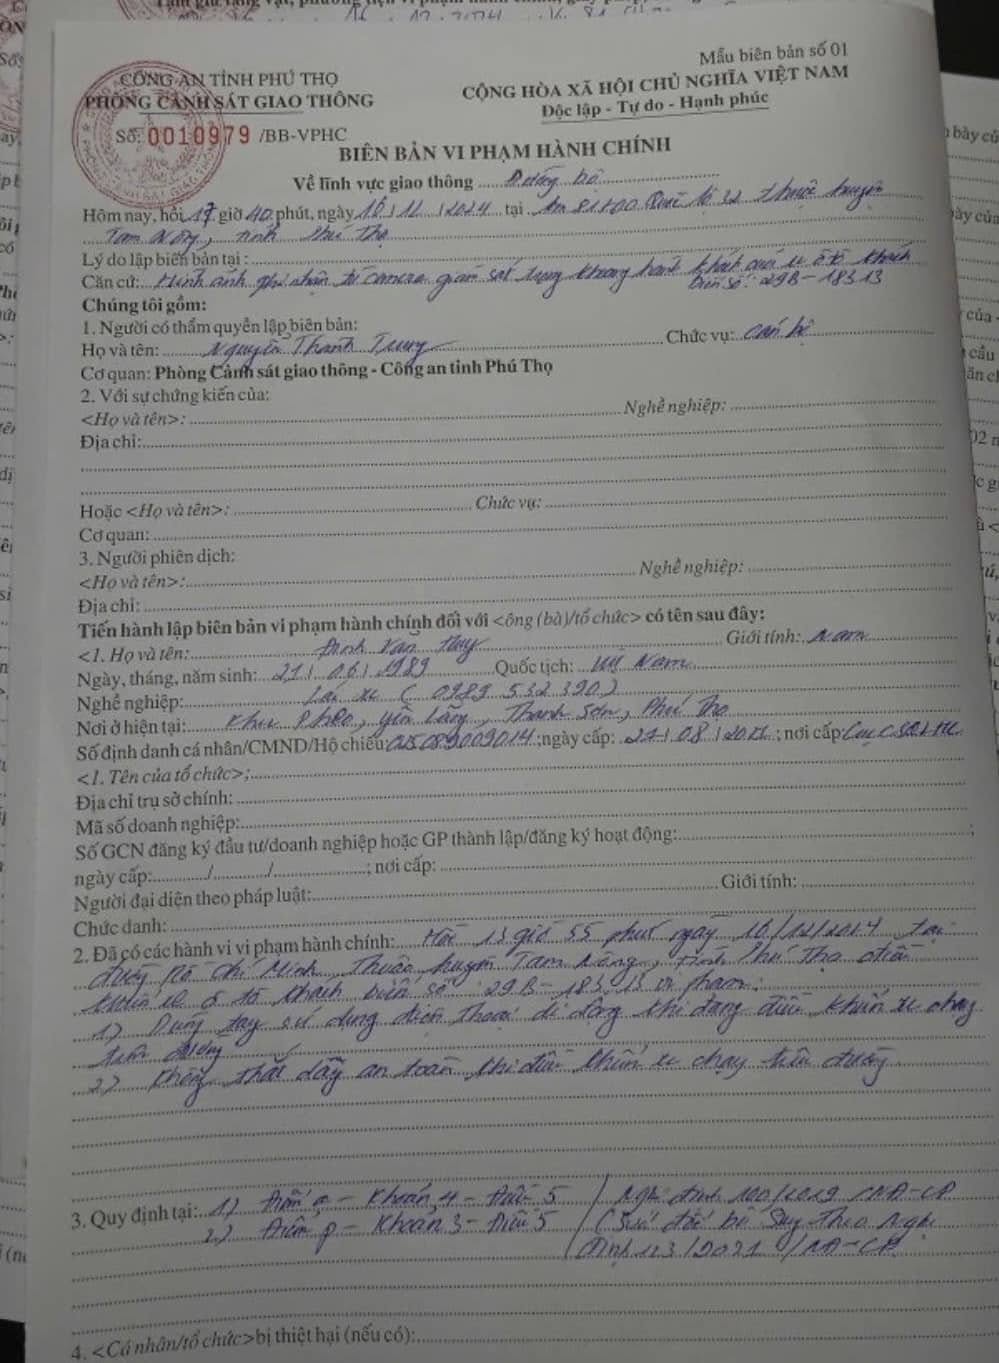 Mẫu biên bản số 01
CÔNG AN TỈNH PHÚ THỌ
CỘNG HÒA XÃ HỘI CHỦ NGHĨA VIỆT NAM
PHÒNG CẢNH SÁT GIAO THÔNG
Độc lập - Tự do - Hạnh phúc
Số: 0010979 /BB-VPHC
BIÊN BẢN VI PHẠM HÀNH CHÍNH
Về lĩnh vực giao thông đường bộ
Hôm nay, hồi 17 giờ 40 phút, ngày 16/12/2024 tại Km 81+00 Quốc lộ 32 thuộc huyện
Tam Nông, tỉnh Phú Thọ
Lý do lập biên bản tại:
Căn cứ: Hình ảnh ghi nhận từ camera giám sát trong khoang hành khách của xe ô tô khách
biển số: 29B-183.13
Chúng tôi gồm:
1. Người có thẩm quyền lập biên bản:
Họ và tên: Nguyễn Thành Trung Chức vụ: Cán bộ
Cơ quan: Phòng Cảnh sát giao thông - Công an tỉnh Phú Thọ
2. Với sự chứng kiến của:
<Họ và tên>: Nghề nghiệp:
Địa chỉ:
Hoặc <Họ và tên>: Chức vụ:
Cơ quan:
3. Người phiên dịch:
<Họ và tên>: Nghề nghiệp:
Địa chỉ:
Tiến hành lập biên bản vi phạm hành chính đối với <ông (bà)/tổ chức> có tên sau đây:
<1. Họ và tên: Đinh Văn Giới tính: Nam
Ngày, tháng, năm sinh: 21/06/1989 Quốc tịch: Việt Nam
Nghề nghiệp: Lái xe (0989 532 390)
Nơi ở hiện tại: Khu Phéo, Yên Lãng, Thanh Sơn, Phú Thọ
Số định danh cá nhân/CMND/Hộ chiếu: 025089009014; ngày cấp: 27/08/ ; nơi cấp: Cục
<1. Tên của tổ chức>:
Địa chỉ trụ sở chính:
Mã số doanh nghiệp:
Số GCN đăng ký đầu tư/doanh nghiệp hoặc GP thành lập/đăng ký hoạt động: ;
ngày cấp: / / ; nơi cấp:
Người đại diện theo pháp luật: Giới tính:
Chức danh:
2. Đã có các hành vi vi phạm hành chính: Hồi 13 giờ 55 phút ngày 16/12/2024 tại
đường Hồ Chí Minh, thuộc huyện Tam Nông, tỉnh Phú Thọ điều
khiển xe ô tô khách biển số: 29B-183.13 vi phạm:
1) Dùng tay sử dụng điện thoại di động khi đang điều khiển xe chạy
trên đường
2) Không thắt dây an toàn khi điều khiển xe chạy trên đường
3. Quy định tại: 1) Điểm - Khoản 4 - Điều 5 / Nghị định 100/2019/NĐ-CP
2) Điểm p - Khoản 3 - Điều 5 (Sửa đổi bổ sung theo Nghị
định 123/2021/NĐ-CP
4. <Cá nhân/tổ chức> bị thiệt hại (nếu có):